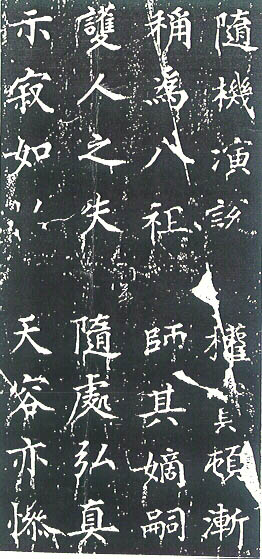 隨機演說權頓漸
稱為八祖師其嫡嗣
護人之失隨處弘真
示寂如天容亦慘